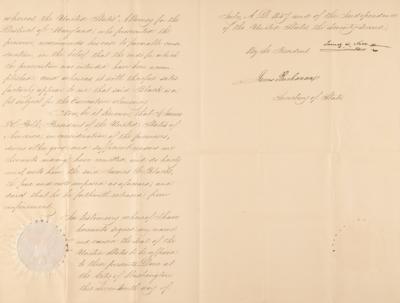 whereas the United States' Attorney for the
District of Maryland, who prosecuted the
prisoner, recommends his case to favorable consi-
deration, in the belief that the ends for which
the prosecution was intended have been accom-
plished; and whereas it doth therefore satis-
factorily appear to me that said Black is a
fit subject for the Executive clemency:
Now, be it known, that I James
K. Polk, President of the United States of
America, in consideration of the premises,
divers other good and sufficient reasons me
hereunto moving, have remitted, and do hereby
remit unto him, the said James Black,
the fine and costs imposed as aforesaid, and
direct that he be forthwith released from
imprisonment.
In testimony whereof I have
hereunto signed my name
and caused the Seal of the
United States to be affixed
to these presents. Done at
the City of Washington
this seventeenth day of
July, A.D. 1847 and of the Independence
of the United States the seventy-second.
By the President James K. Polk
James Buchanan
Secretary of State